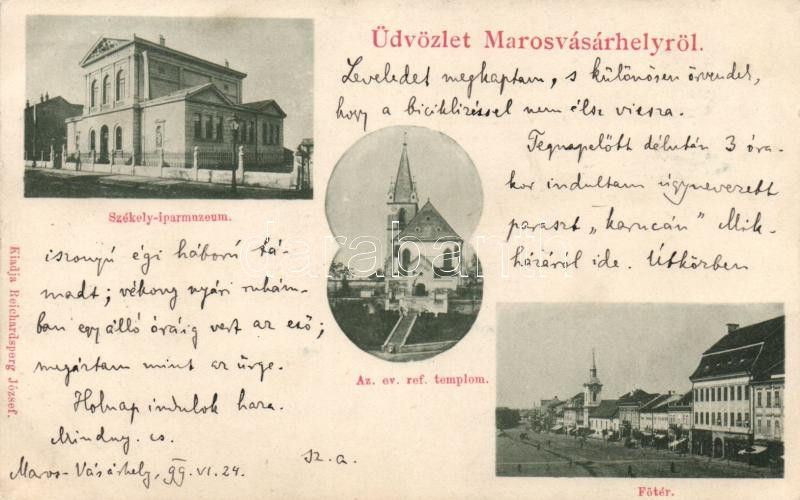 Üdvözlet Marosvásárhelyről.
Leveledet megkaptam, s különösen örvendek,
hogy a biciklizéssel nem élsz vissza.
Tegnapelőtt délután 3 óra-
kor indultam úgynevezett
paraszt „karucán” Mik-
házáról ide. Útközben
iszonyú égi háború tá-
madt; vékony nyári ruhám-
ban egy álló óráig vert az eső;
megáztam mint az ürge.
Holnap indulok haza.
Mindny. cs.
Sz. a.
Maros-Vásárhely, 99. VI. 24.
Székely-iparmuzeum.
Az. ev. ref. templom.
Főtér.
Kiadja Reichardsperg József.
darabanth.com